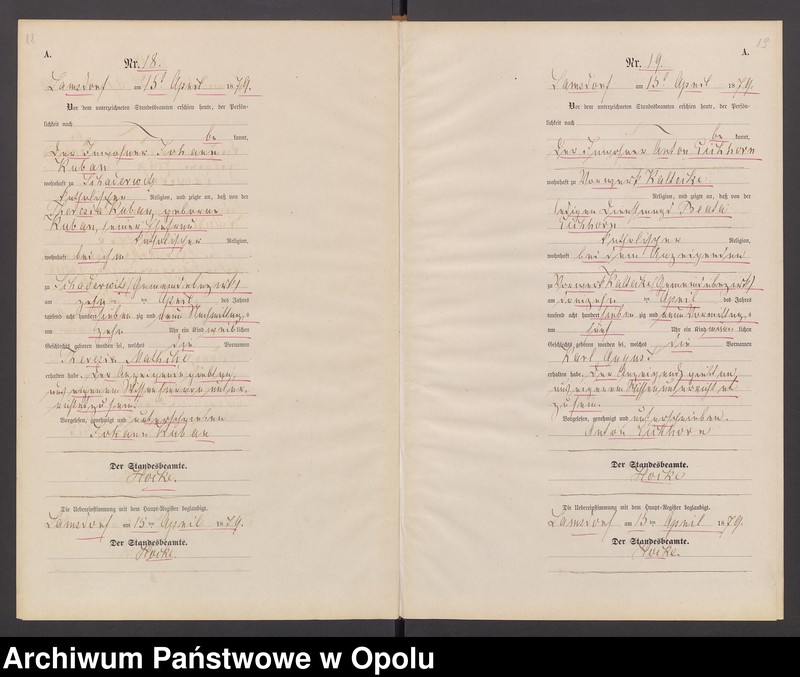 12
A.
Nr. 18.
Lamsdorf am 15t April 1879.
Vor dem unterzeichneten Standesbeamten erschien heute, der Persön-
lichkeit nach
be kannt,
der Inwohner Johann
Kuban
wohnhaft zu Schaderwitz
katholischer Religion, und zeigte an, daß von der
Theresia Kuban, geborne
Kuban, seiner Ehefrau
katholischer Religion,
wohnhaft bei ihm
zu Schaderwitz Gemeindebezirks
am zehnten April des Jahres
tausend acht hundert sieben zig und neun Nachmittags
um zehn Uhr ein Kind weiblichen
Geschlechts geboren worden sei, welches die Vornamen
Theresia
erhalten habe. Der Anzeigende
aus eigener Wissenschaft unter-
richtet zu sein.
Vorgelesen, genehmigt und unterschrieben
Johann Kuban
Der Standesbeamte.
Hocke.
Die Uebereinstimmung mit dem Haupt-Register beglaubigt.
Lamsdorf am 15ten April 1879.
Der Standesbeamte.
Hocke.
13
A.
Nr. 19.
Lamsdorf am 15t April 1879.
Vor dem unterzeichneten Standesbeamten erschien heute, der Persön-
lichkeit nach
be kannt,
der Inwohner Anton Eichhorn
wohnhaft zu Vorwerk Kaltecke
Religion, und zeigte an, daß von der
ledigen Dienstmagd Beata
Eichhorn
katholischer Religion,
wohnhaft bei dem Anzeigenden
zu Vorwerk Kaltecke Gemeindebezirks
am April des Jahres
tausend acht hundert sieben zig und neun Vormittags
um fünf Uhr ein Kind männlichen
Geschlechts geboren worden sei, welches die Vornamen
Karl August
erhalten habe. Der Anzeigende
aus eigener Wissen unterrichtet
zu sein.
Vorgelesen, genehmigt und unterschrieben.
Anton Eichhorn
Der Standesbeamte.
Hocke
Die Uebereinstimmung mit dem Haupt-Register beglaubigt.
Lamsdorf am 15ten April 1879.
Der Standesbeamte.
Hocke.
Archiwum Państwowe w Opolu